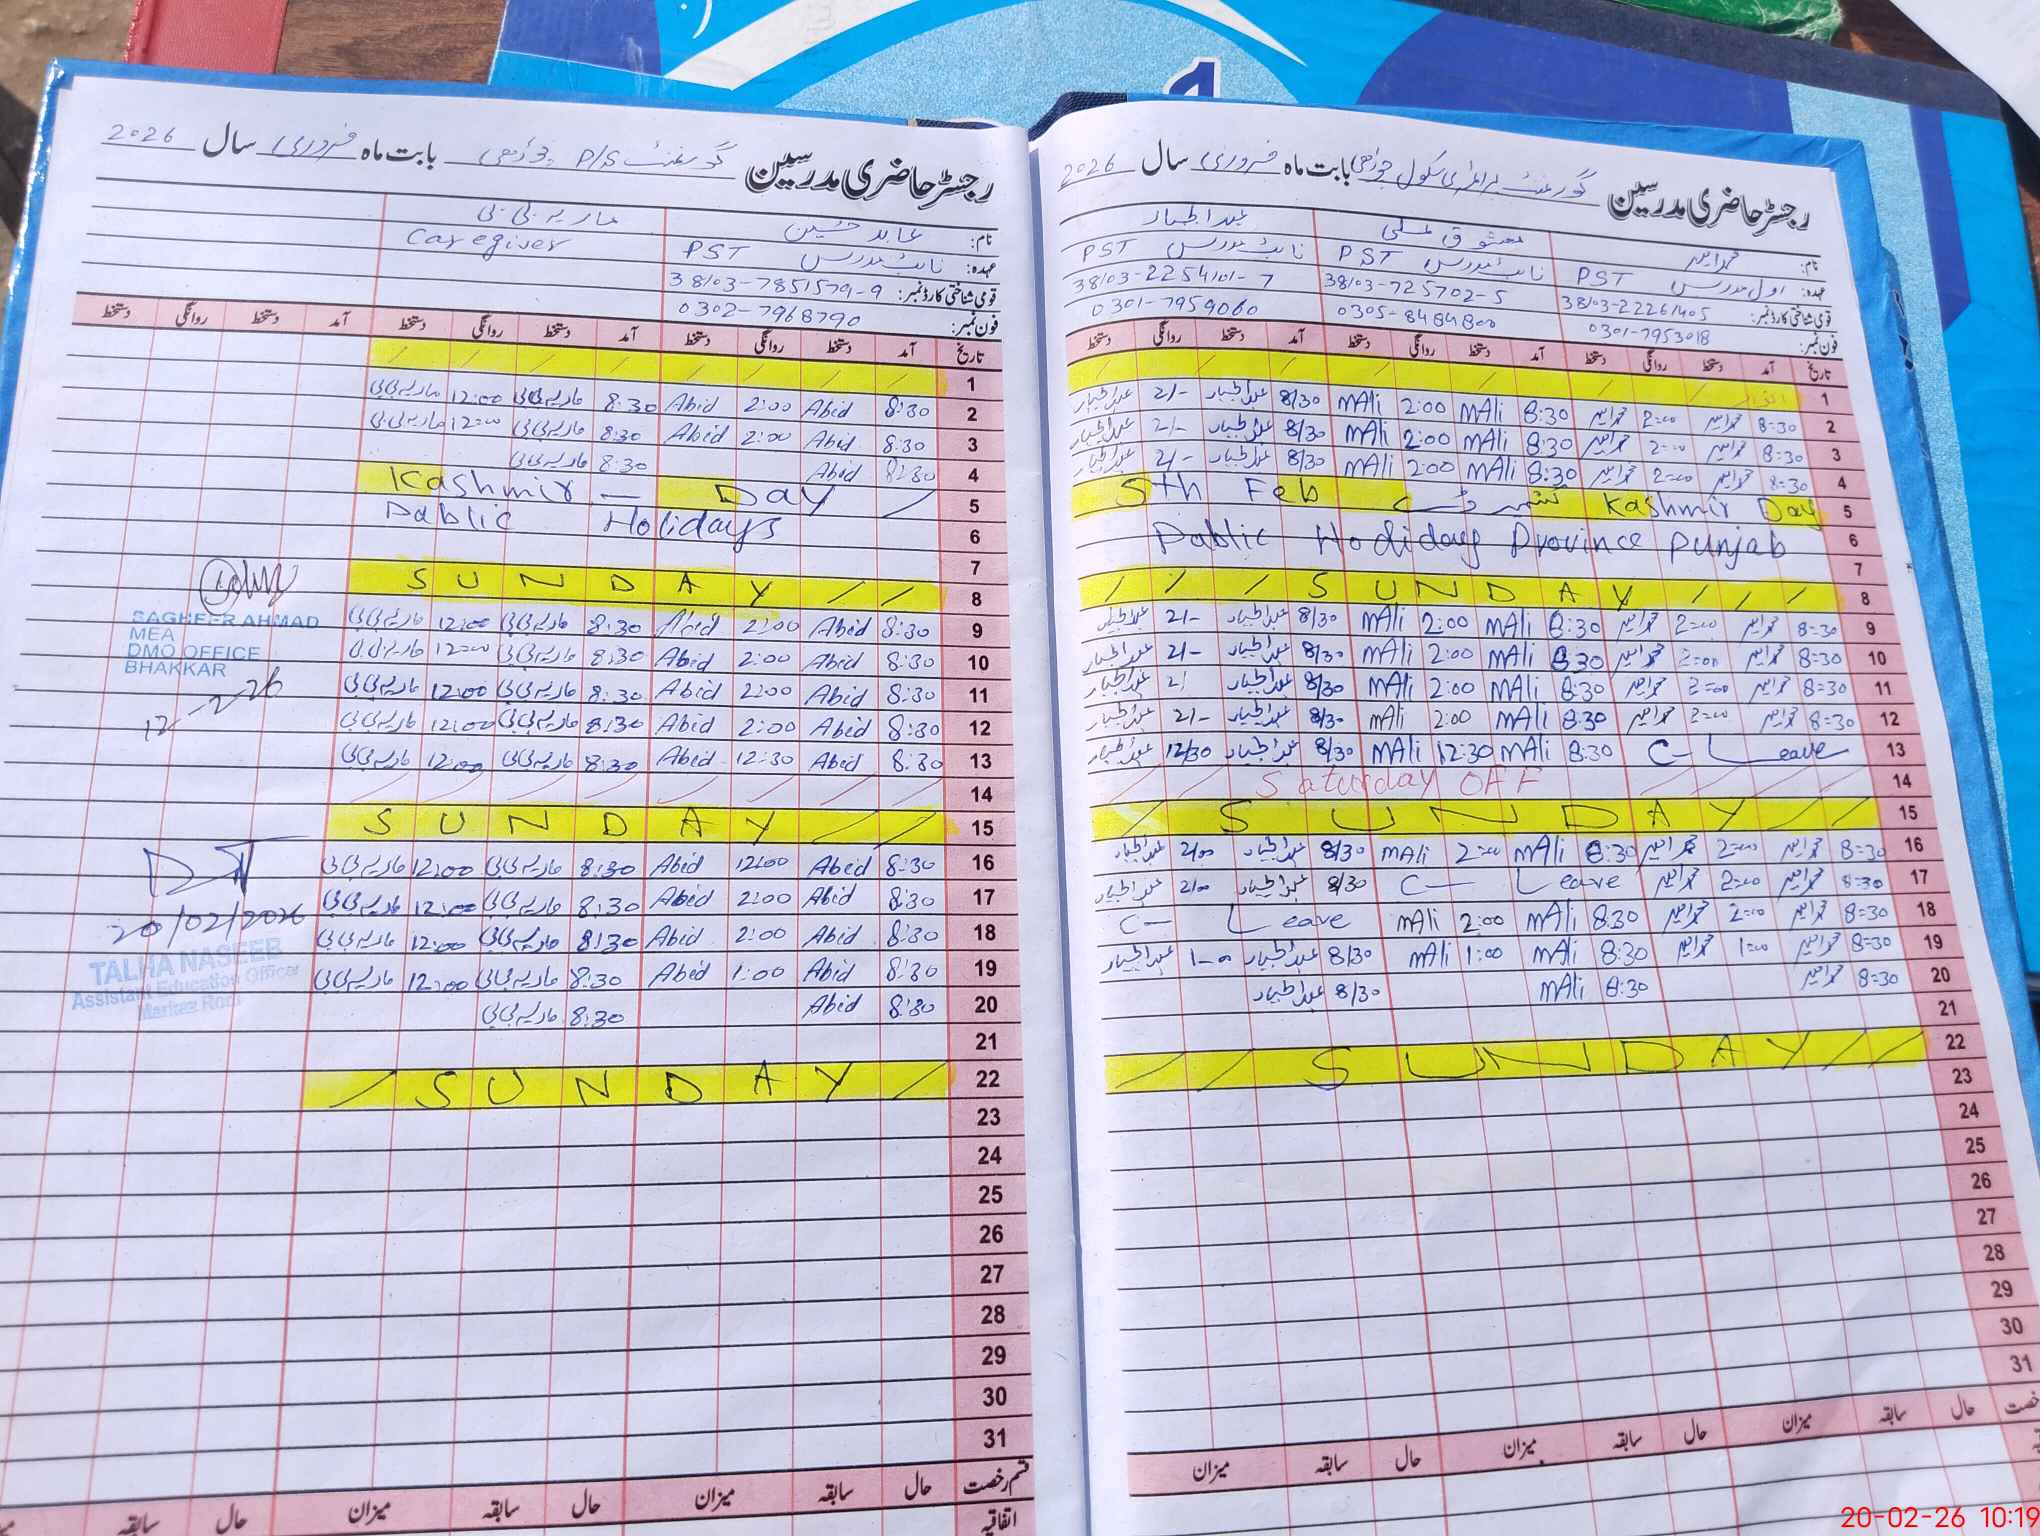 رجسٹر حاضری مدرسین گورنمنٹ P/S بابت ماہ فروری سال 2026
نام: عابد حسین ماریہ بی بی
عہدہ: نائب مدرس PST Caregiver
قومی شناختی کارڈ نمبر: 38103-7851579-9
فون نمبر: 0302-7968790
تاریخ آمد دستخط روانگی دستخط آمد دستخط روانگی دستخط آمد دستخط روانگی دستخط
1
2 8:30 Abid 2:00 Abid 8:30 ماریہ بی بی 12:00 ماریہ بی بی
3 8:30 Abid 2:00 Abid 8:30 ماریہ بی بی 12:00 ماریہ بی بی
4 8:30 Abid 8:30 ماریہ بی بی
5 Kashmir – Day
6 Pablic Holidays
7
8 SUNDAY
9 8:30 Abid 2:00 Abid 8:30 ماریہ بی بی 12:00 ماریہ بی بی
10 8:30 Abid 2:00 Abid 8:30 ماریہ بی بی 12:00 ماریہ بی بی
11 8:30 Abid 2:00 Abid 8:30 ماریہ بی بی 12:00 ماریہ بی بی
12 8:30 Abid 2:00 Abid 8:30 ماریہ بی بی 12:00 ماریہ بی بی
13 8:30 Abid 12:30 Abid 8:30 ماریہ بی بی 12:00 ماریہ بی بی
14
15 SUNDAY
16 8:30 Abid 12:00 Abid 8:30 ماریہ بی بی 12:00 ماریہ بی بی
17 8:30 Abid 2:00 Abid 8:30 ماریہ بی بی 12:00 ماریہ بی بی
18 8:30 Abid 2:00 Abid 8:30 ماریہ بی بی 12:00 ماریہ بی بی
19 8:30 Abid 1:00 Abid 8:30 ماریہ بی بی 12:00 ماریہ بی بی
20 8:30 Abid 8:30 ماریہ بی بی
21
22 SUNDAY
23
24
25
26
27
28
29
30
31
قسم رخصت حال سابقہ میزان حال سابقہ میزان حال سابقہ
اتفاقیہ
SAGHEER AHMAD
MEA
DMO OFFICE
BHAKKAR
12-2-26
20/02/2026
TALHA NASEEB
Assistant Education Officer
Markaz Rodi
رجسٹر حاضری مدرسین گورنمنٹ پرائمری سکول بابت ماہ فروری سال 2026
نام: معشوق علی عبدالجبار
عہدہ: اول مدرس PST نائب مدرس PST نائب مدرس PST
قومی شناختی کارڈ نمبر: 38103-725702-5
فون نمبر: 0301-7953018 0305-8484800 0301-7959060
تاریخ آمد دستخط روانگی دستخط آمد دستخط روانگی دستخط آمد دستخط روانگی دستخط
1
2 8=30 2=00 8:30 MAli 2:00 MAli 8/30 عبدالجبار 2/- عبدالجبار
3 8=30 2=00 8:30 MAli 2:00 MAli 8/30 عبدالجبار 2/- عبدالجبار
4 8=30 2=00 8:30 MAli 2:00 MAli 8/30 عبدالجبار 2/- عبدالجبار
5 5th Feb کشمیر ڈے Kashmir Day
6 Pablic Hodiday Province Punjab
7
8 SUNDAY
9 8=30 2=00 8:30 MAli 2:00 MAli 8/30 عبدالجبار 2/- عبدالجبار
10 8=30 2=00 8:30 MAli 2:00 MAli 8/30 عبدالجبار 2/- عبدالجبار
11 8=30 2=00 8:30 MAli 2:00 MAli 8/30 عبدالجبار 2/ عبدالجبار
12 8=30 2=00 8:30 MAli 2:00 MAli 8/30 عبدالجبار 2/- عبدالجبار
13 C- Leave 8:30 MAli 12:30 MAli 8/30 عبدالجبار 12/30 عبدالجبار
14 Saturday OFF
15 SUNDAY
16 8=30 2=00 8:30 MAli 2:00 MAli 8/30 عبدالجبار 2/00 عبدالجبار
17 8=30 2=00 C- Leave 8/30 عبدالجبار 2/00 عبدالجبار
18 8=30 2=00 8:30 MAli 2:00 MAli C- Leave
19 8=30 1=00 8:30 MAli 1:00 MAli 8/30 عبدالجبار 1-00 عبدالجبار
20 8=30 8:30 MAli 8/30 عبدالجبار
21
22 SUNDAY
23
24
25
26
27
28
29
30
31
حال سابقہ میزان حال سابقہ میزان حال سابقہ میزان
20-02-26 10:19